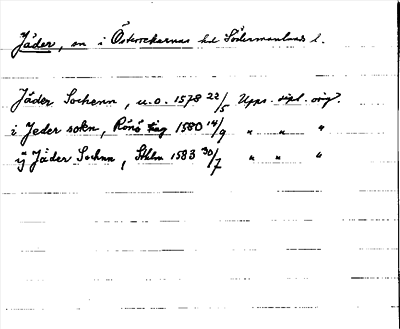 Jäder, sn i Österrekarnas hd Södermanlands l.
Jäder Sochenn, u.o. 1578 22/5 Upps. dipl. orig.
i Jeder sokn, Rönö 1580 14/9 " " "
ij Jäder Sochnn, Sthlm 1583 30/7 " " "